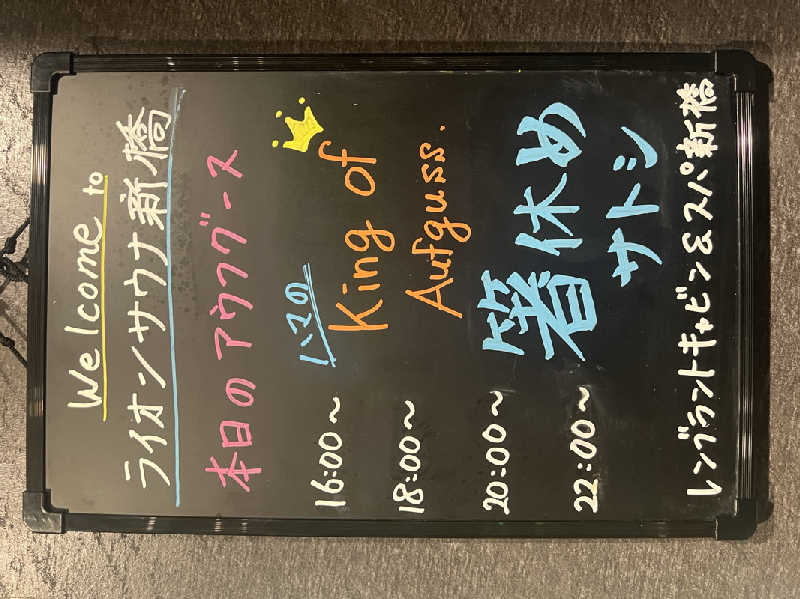 Welcome to
ライオンサウナ新橋
本日のアウフグース
いまの
King of
Aufguss.
16:00～
18:00～
箸休め
サトシ
20:00～
22:00～
レンブラントキャビン&スパ新橋